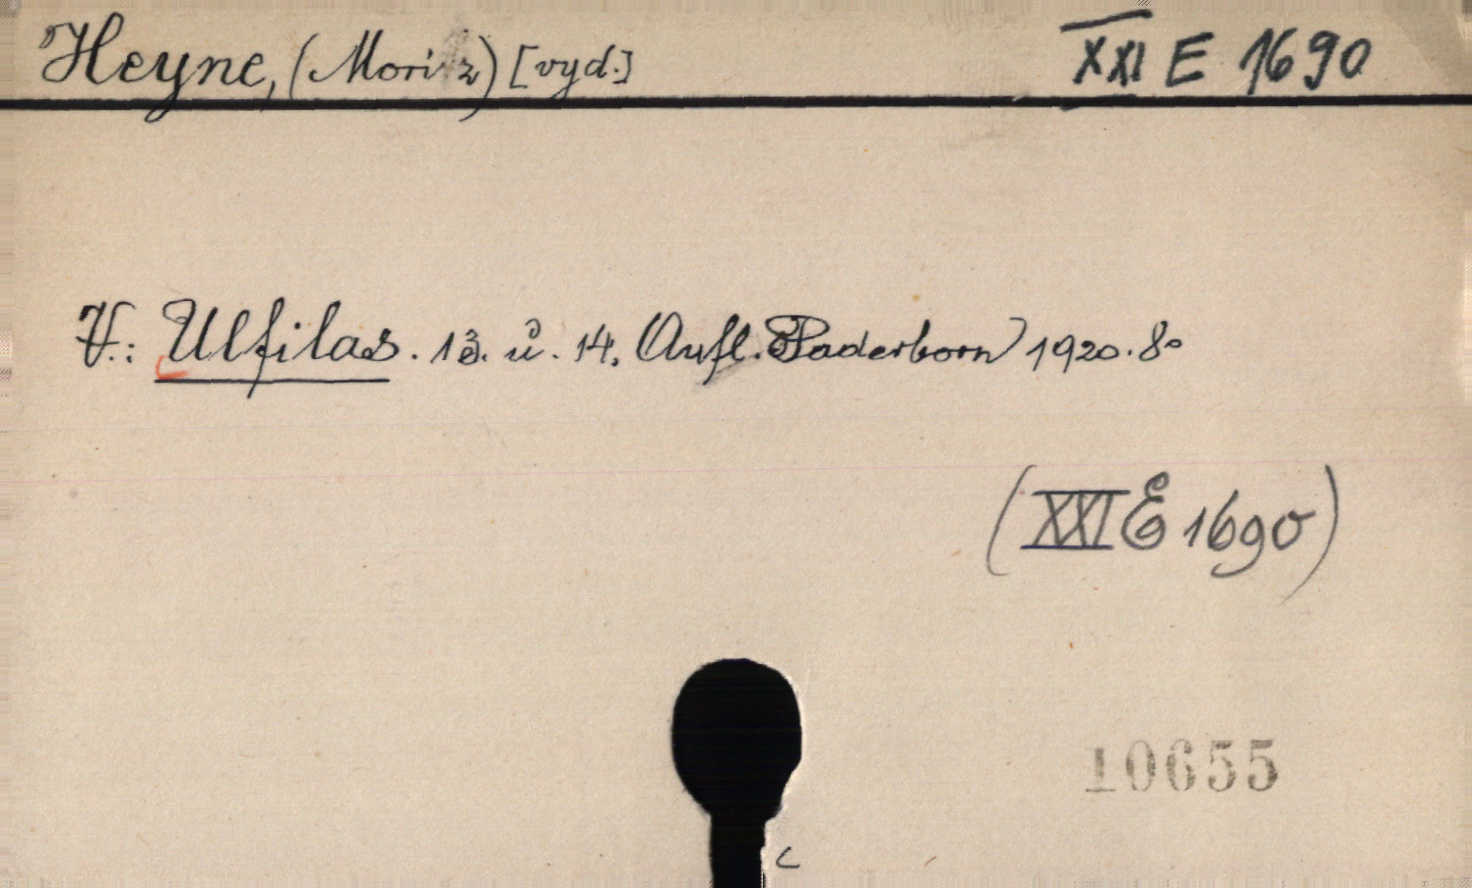 Heyne, (Moriz) [vyd.] XXI E 1690
V.: Ulfilas. 13. u. 14. Aufl. Paderborn 1920. 8°
(XXI E 1690)
10655